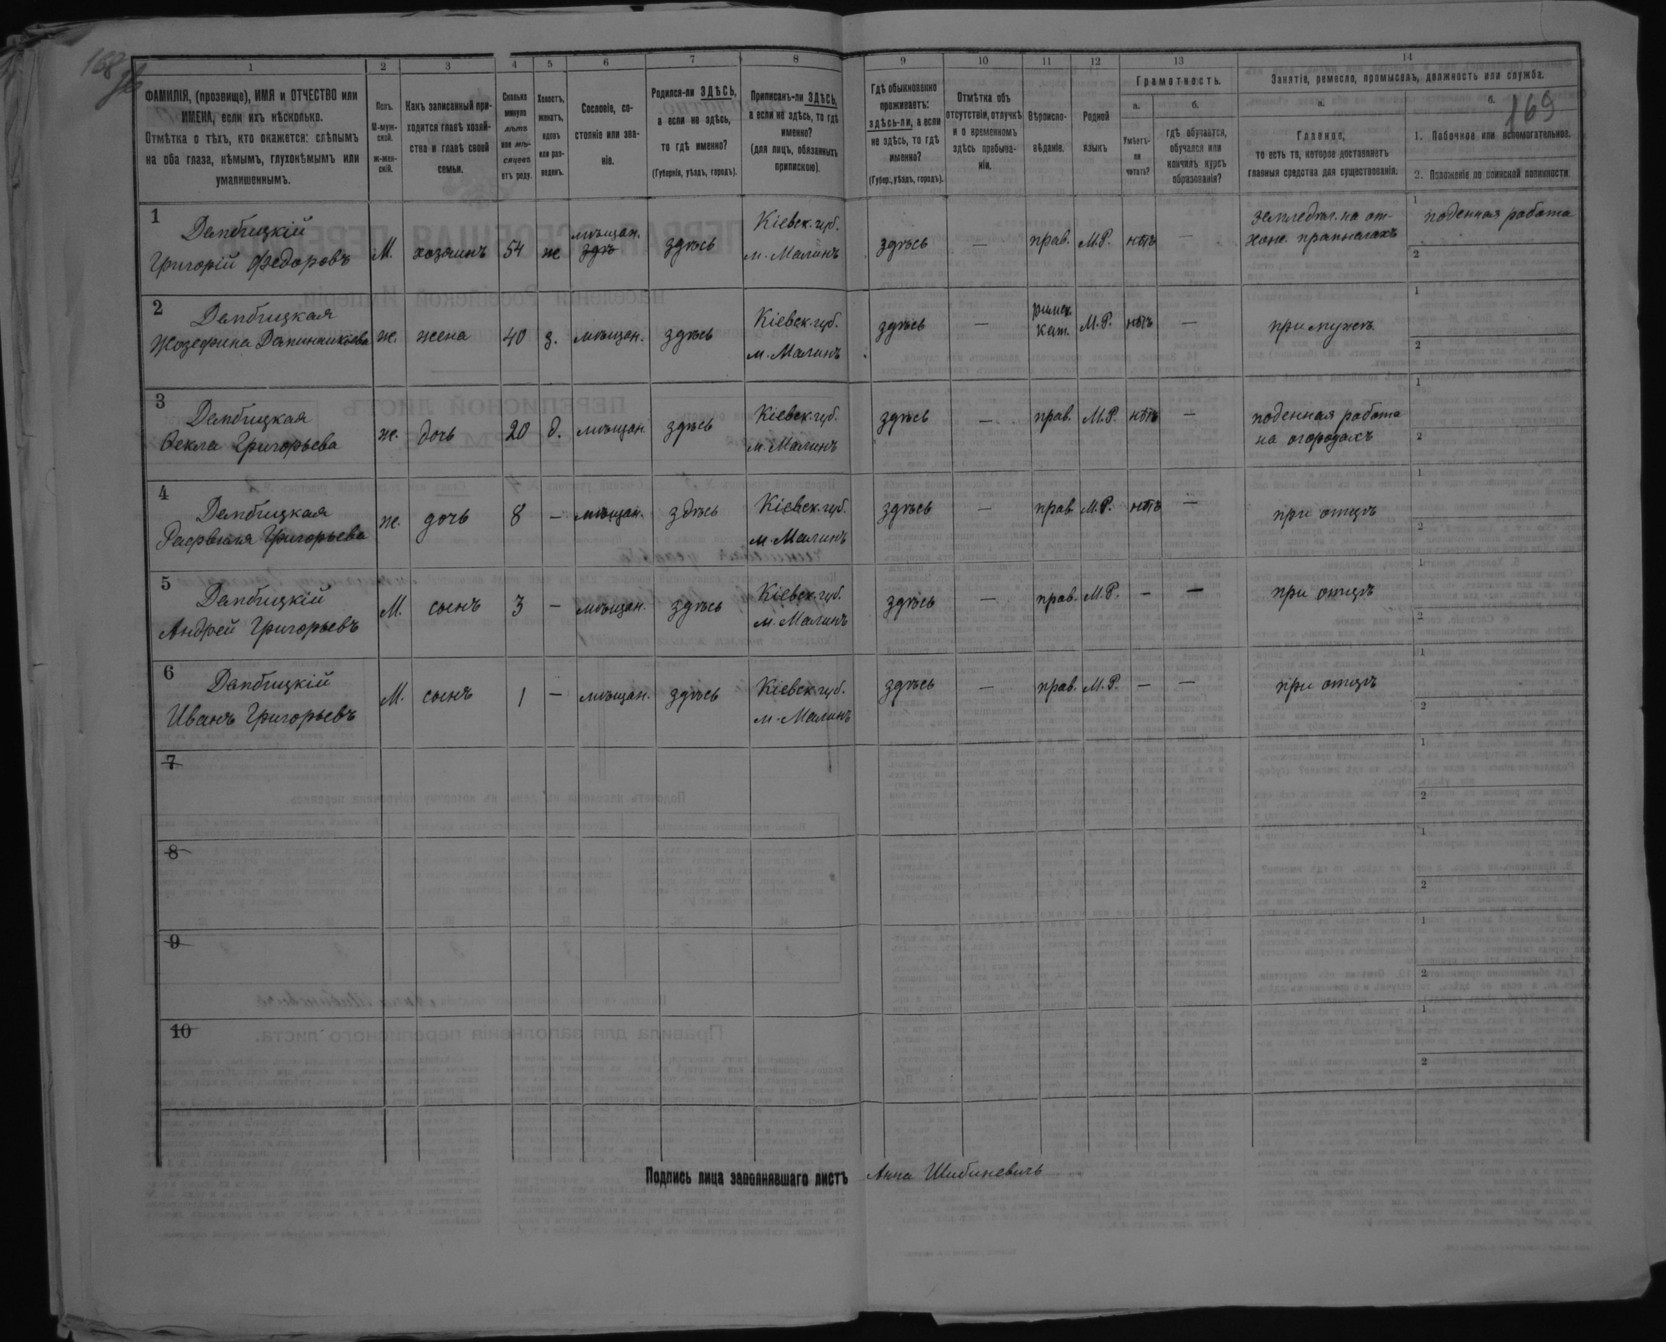 168
169
1 2 3 4 5 6 7 8 9 10 11 12 13 14
ФАМИЛІЯ, (прозвище), ИМЯ и ОТЧЕСТВО или
ИМЕНА, если ихъ нѣсколько.
Отмѣтка о тѣхъ, кто окажется: слѣпымъ
на оба глаза, нѣмымъ, глухонѣмымъ или
умалишеннымъ.
Полъ.
М-муж-
ской.
ж-жен-
скій.
Какъ записанный при-
ходится главѣ хозяй-
ства и главѣ своей
семьи.
Сколько
минуло
лѣтъ
или мѣ-
сяцевъ
отъ роду.
Холостъ,
женатъ,
вдовъ
или раз-
веденъ.
Сословіе, со-
стояніе или зва-
ніе.
Родился-ли ЗДѢСЬ,
а если не здѣсь,
то гдѣ именно?
(Губернія, уѣздъ, городъ).
Приписанъ-ли ЗДѢСЬ,
а если не здѣсь, то гдѣ
именно?
(для лицъ, обязанныхъ
припискою).
Гдѣ обыкновенно
проживаетъ:
здѣсь-ли, а если
не здѣсь, то гдѣ
именно?
(Губер., уѣздъ, городъ).
Отмѣтка объ
отсутствіи, отлучкѣ
и о временномъ
здѣсь пребыва-
ніи.
Вѣроиспо-
вѣданіе.
Родной
языкъ
Грамотность.
а.
Умѣетъ-
ли
читать?
б.
гдѣ обучается,
обучался или
кончилъ курсъ
образованія?
Занятіе, ремесло, промыселъ, должность или служба.
а.
Главное,
то есть то, которое доставляетъ
главныя средства для существованія.
б.
1. Побочное или вспомогательное.
2. Положеніе по воинской повинности
1 Дембицкій
Григорій Федоровъ М. хозяинъ 54 ж мѣщан. здѣсь Кіевск. губ.
м. Малинъ здѣсь — прав. М.Р. нѣтъ — 1 поденная работа
2
2 Дембицкая
Жозефина ж. жена 40 з. мѣщан. здѣсь Кіевск. губ.
м. Малинъ здѣсь — римск.
кат. М.Р. нѣтъ — при мужѣ 1
2
3 Дембицкая
Ѳекла Григорьева ж. дочь 20 д. мѣщан здѣсь Кіевск. губ.
м. Малинъ здѣсь — прав. М.Р. нѣтъ — поденная работа
на огородахъ 1
2
4 Дембицкая
Григорьева ж. дочь 8 — мѣщан. здѣсь Кіевск. губ.
м. Малинъ здѣсь — прав. М.Р. нѣтъ — при отцѣ 1
2
5 Дембицкій
Андрей Григорьевъ М. сынъ 3 — мѣщан. здѣсь Кіевск. губ.
м. Малинъ здѣсь — прав. М.Р. — — при отцѣ 1
2
6 Дембицкій
Иванъ Григорьевъ М. сынъ 1 — мѣщан. здѣсь Кіевск. губ.
м. Малинъ здѣсь — прав. М.Р. — — при отцѣ 1
2
7 1
2
8 1
2
9 1
2
10 1
2
Подпись лица заполнявшаго листъ Анна Шибиневичъ